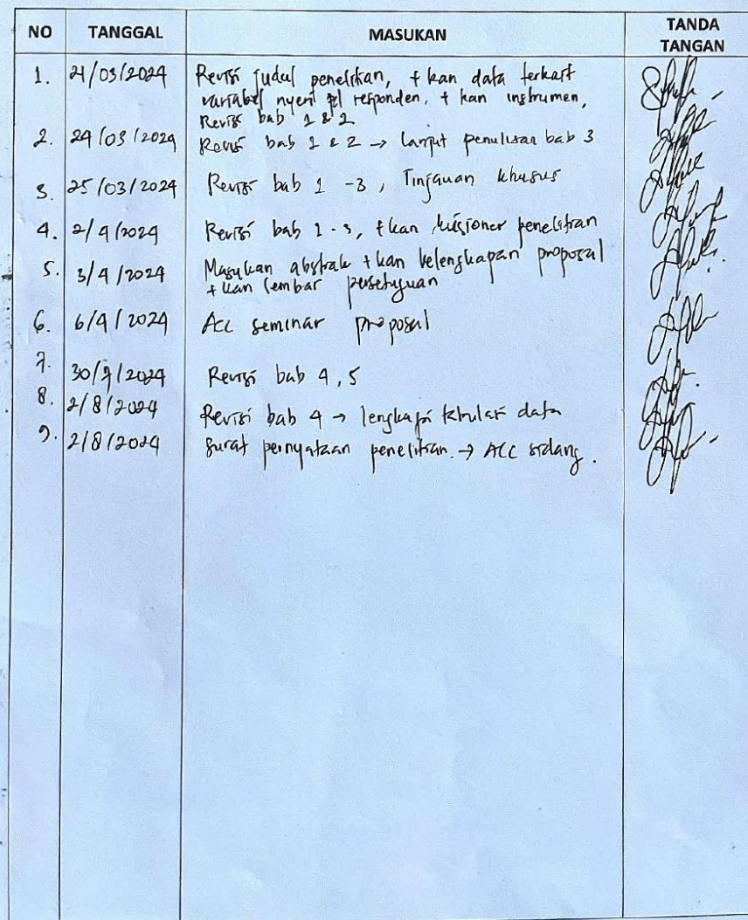 NO TANGGAL MASUKAN TANDA TANGAN
1. 21/03/2024 Revisi judul penelitian, + kan data terkait
variabel nyeri responden, + kan instrumen,
Revisi bab 1 & 2
2. 24/03/2024 Revisi bab 1 & 2 → lanjut penulisan bab 3
3. 25/03/2024 Revisi bab 1 - 3, Tinjauan khusus
4. 2/4/2024 Revisi bab 1 - 3, + kan kuisioner penelitian
5. 3/4/2024 Masukan abstrak + kan kelengkapan proposal
+ kan lembar persetujuan
6. 6/4/2024 Acc seminar proposal
7. 30/7/2024 Revisi bab 4, 5
8. 2/8/2024 Revisi bab 4 → lengkapi tabulasi data
9. 2/8/2024 Surat pernyataan penelitian. → ACC sidang.